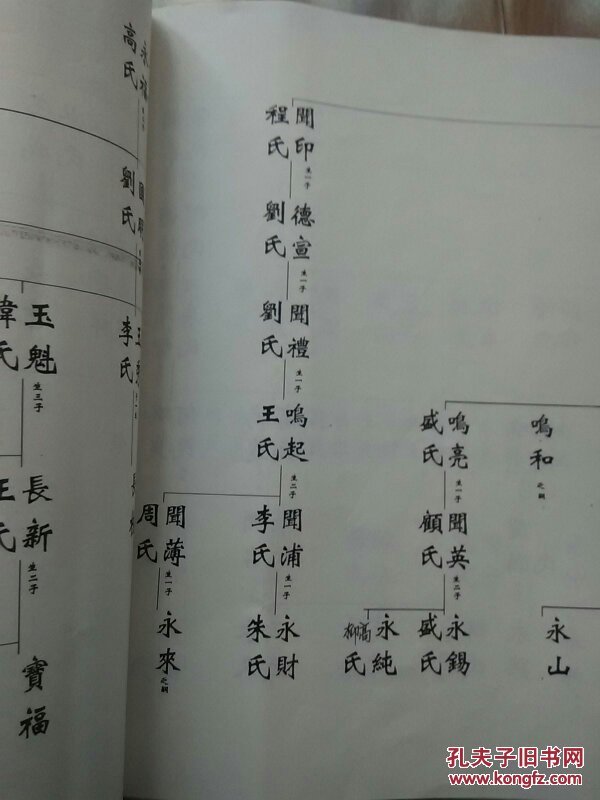 聞印
程氏
生一子
德宣
劉氏
生一子
聞禮
劉氏
生一子
鳴起
王氏
生二子
聞浦
李氏
生一子
永財
朱氏
聞薄
周氏
生一子
永來
之嗣
鳴和
之嗣
鳴亮
盛氏
生一子
聞英
顧氏
生二子
永錫
盛氏
永純
高
柳
氏
永山
永福
高氏
劉氏
李氏
玉魁
生三子
長新
生二子
王氏
寶福
孔夫子旧书网
www.kongfz.com